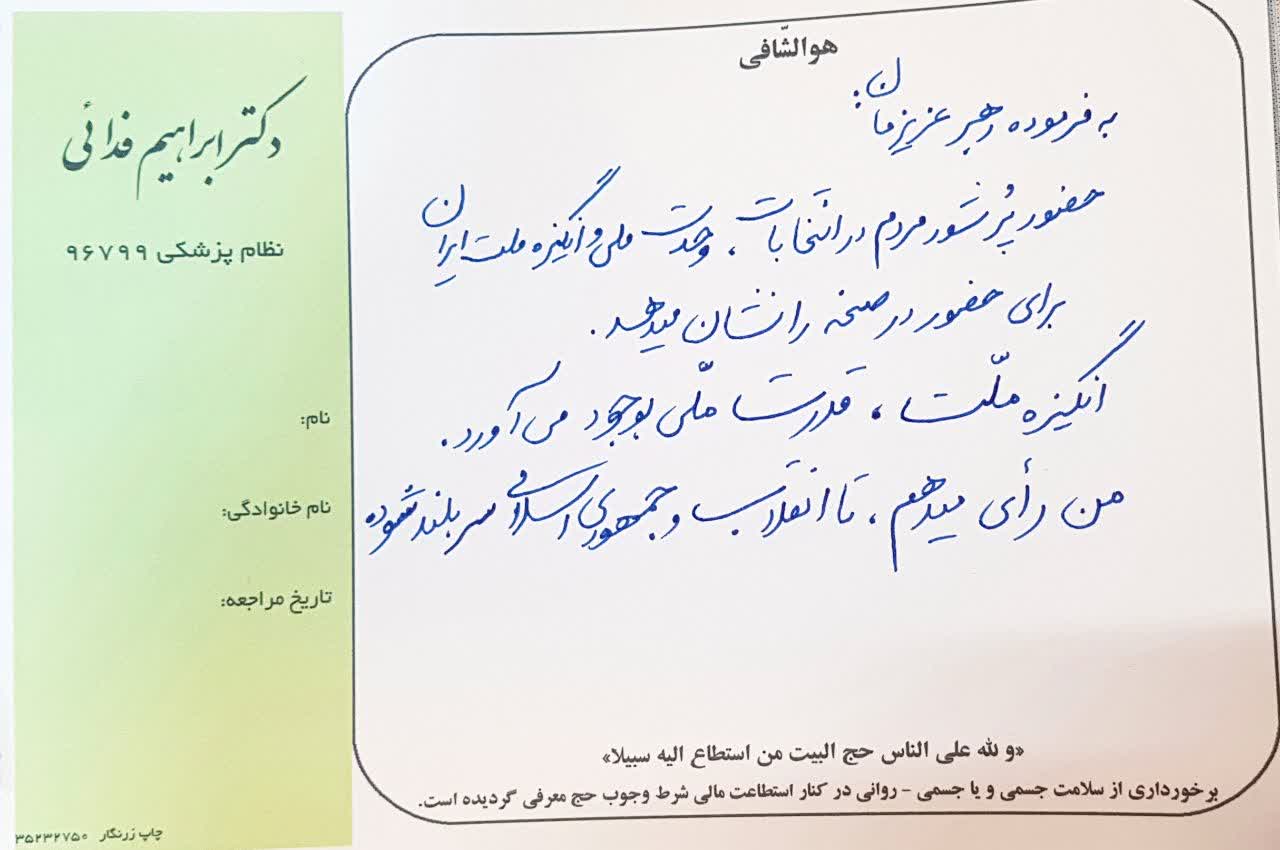 هوالشّافی
به فرموده رهبر عزیزمان:
حضور پُر شور مردم در انتخابات، وحدت ملی و انگیزه ملت ایران
برای حضور در صحنه را نشان میدهد.
انگیزه ملّت، قدرت ملّی بوجود می‌آورد.
من رأی میدهم، تا انقلاب و جمهوری اسلامی سربلند شوده
«و لله علی الناس حج البیت من استطاع الیه سبیلا»
برخورداری از سلامت جسمی و یا جسمی - روانی در کنار استطاعت مالی شرط وجوب حج معرفی گردیده است.
دکتر ابراهیم فدائی
نظام پزشکی ۹۶۷۹۹
نام:
نام خانوادگی:
تاریخ مراجعه:
چاپ زرنگار ۳۵۲۳۲۷۵۰